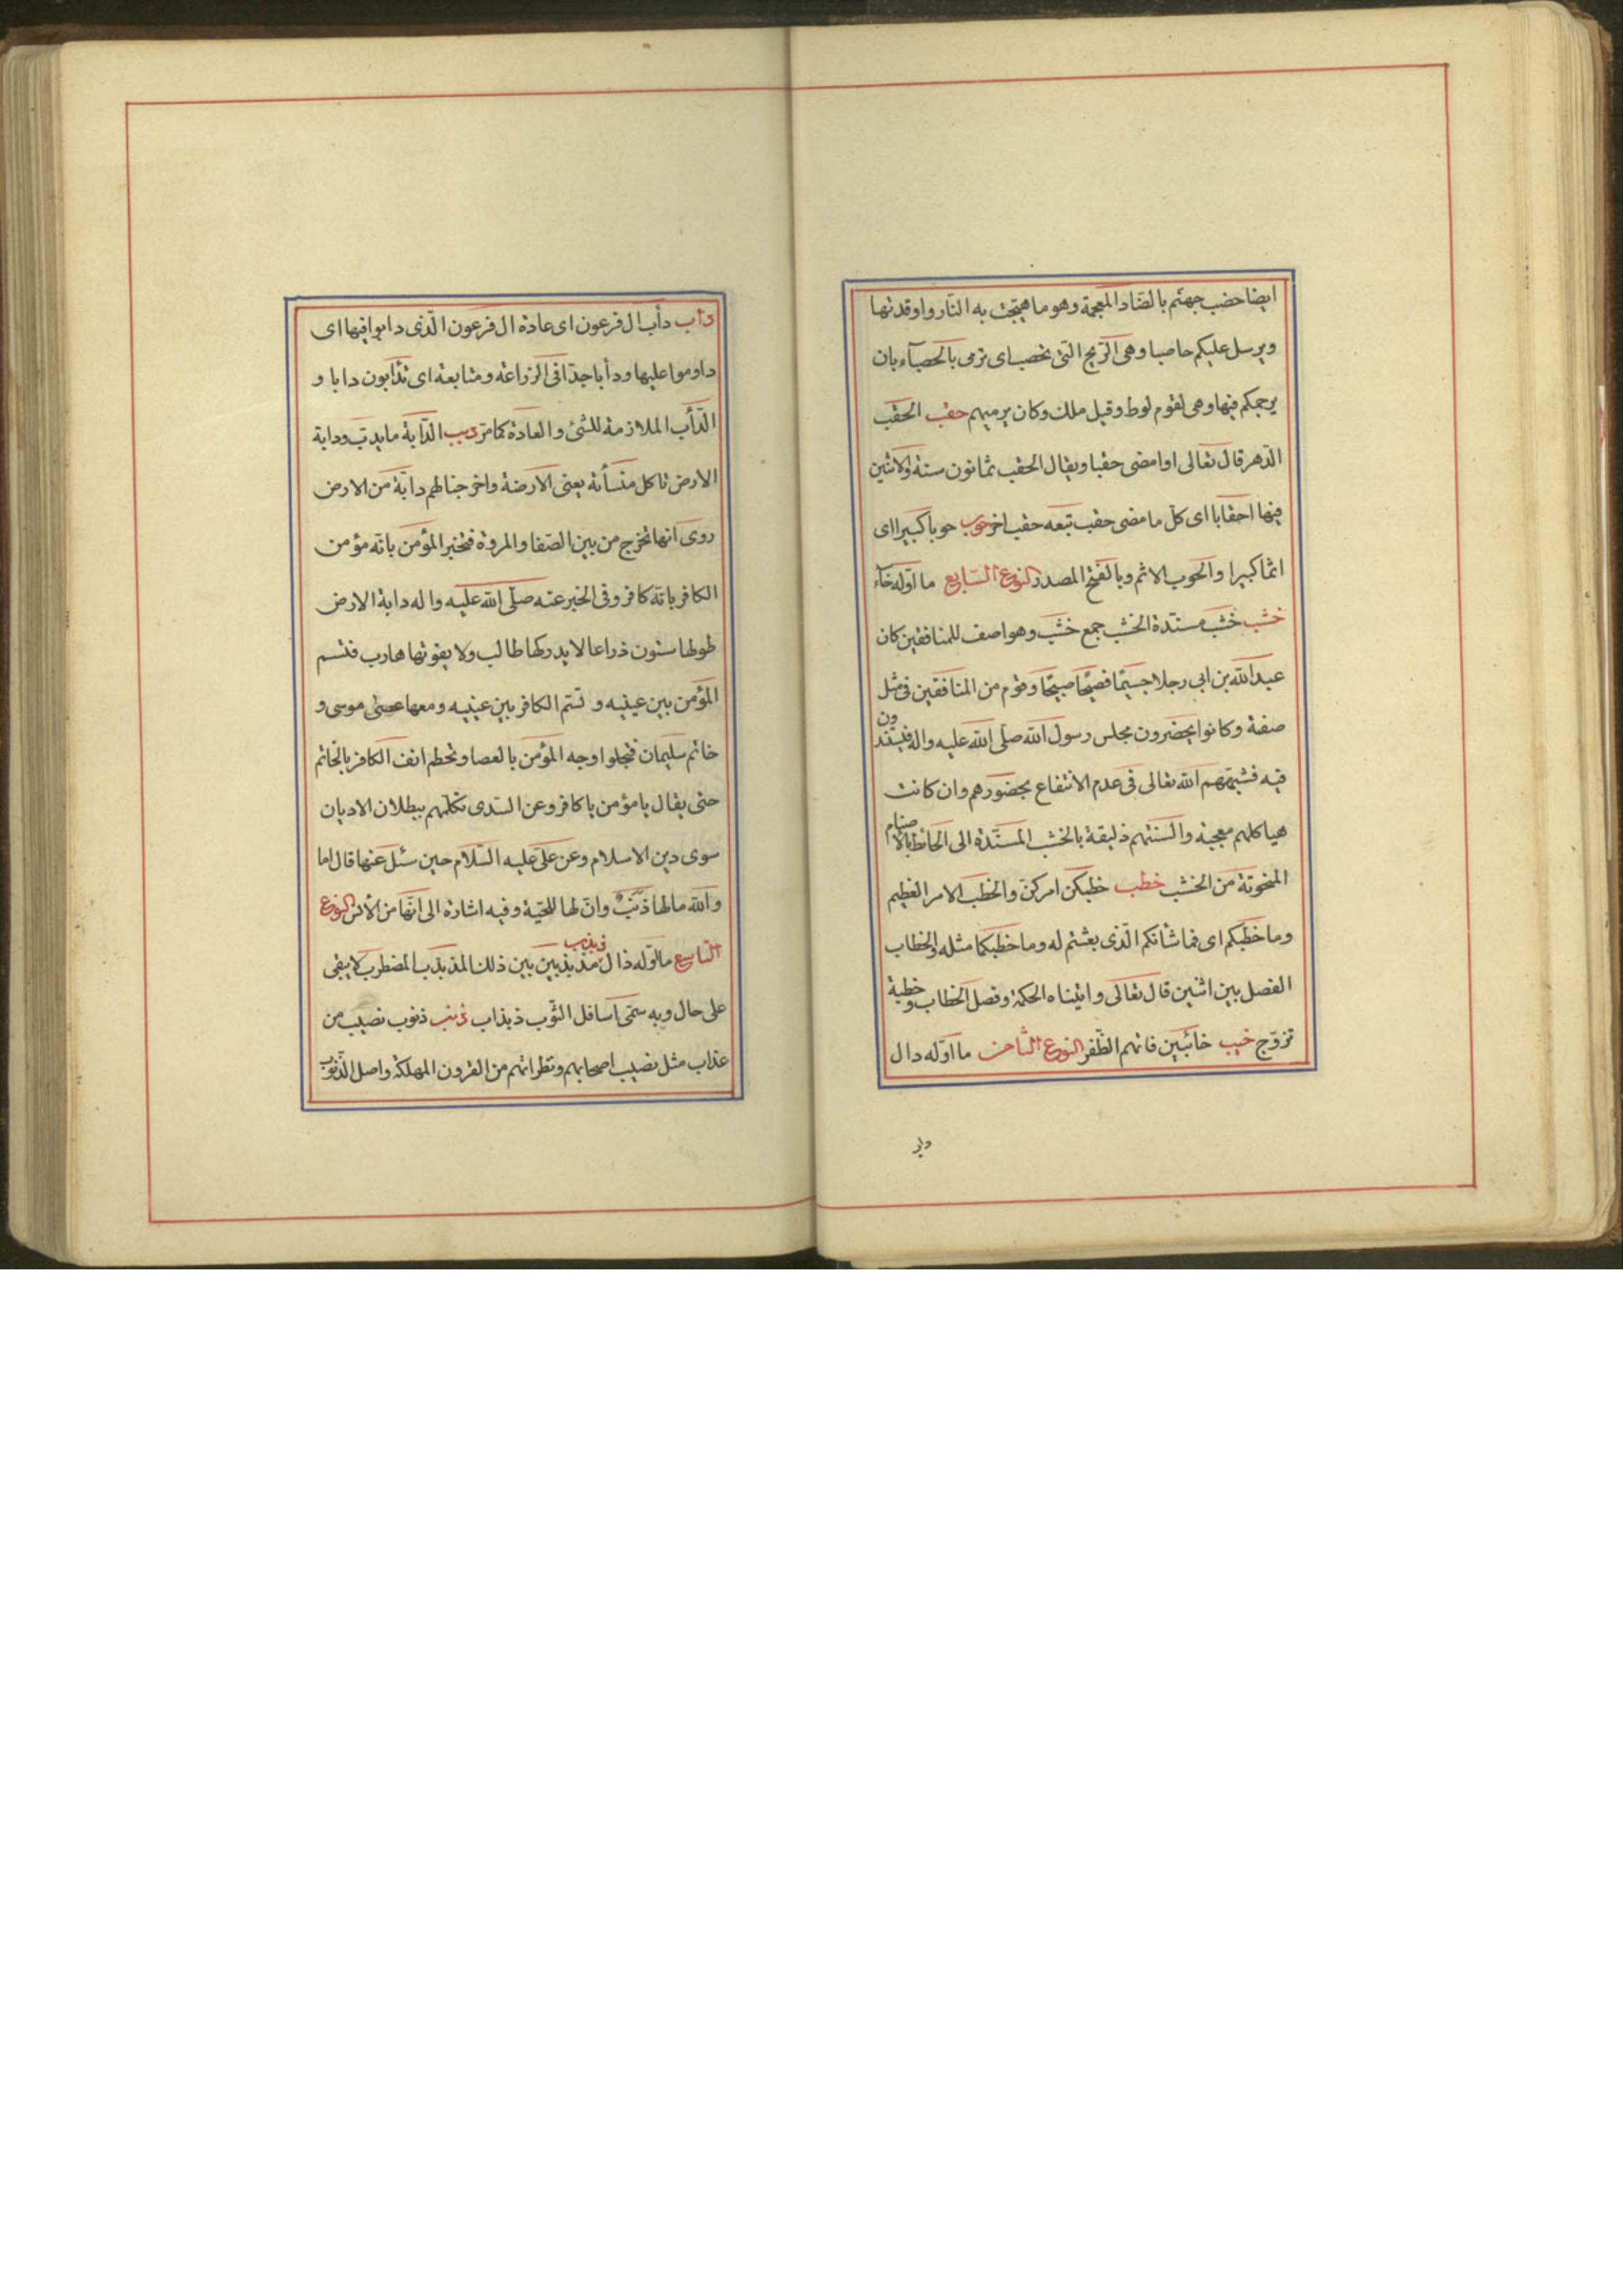 ايضا حضب جهنّم بالضّاد المعجمة وهو ما هيّجت به النّار واوقدتها
ويرسل عليكم حاصبا وهى الرّيح الّتى تحصب اى ترمى بالحصبآء بان
يرجمكم فيها وهى لقوم لوط وقيل ملك وكان يرميهم حقب الحقب
الدّهر قال تعالى او امضى حقبا ويقال الحقب ثمانون سنة ولابثين
فيها احقابا اى كل ما مضى حقب تبعه حقب اخر حوب حوبا كبيرا اى
اثما كبيرا والحوب الاثم وبالفتح المصدر النوع السّابع ما اوّله خآء
خشب خشب مسنّدة الخشب جمع خشب وهو اصف للمنافقين كان
عبد الله بن ابى رجلا جسيمًا فصيحًا صبيحًا وقوم من المنافقين فى مثل
صفة وكانوا يحضرون مجلس رسول الله صلّى الله عليه واله فيستندون
فيه فشبّههم الله تعالى فى عدم الانتفاع بحضورهم وان كانت
هياكلهم معجبة والسنتهم ذليقة بالخشب المسنّدة الى الحائط بالاصنام
المنحوتة من الخشب خطب خطبكن امركنّ والخطب الامر العظيم
وما خطبكم اى فما شانكم الّذى بعثتم له وما خطبكما مثله والخطاب
الفصل بين اثنين قال تعالى واتيناه الحكمة وفصل الخطاب وخطبة
تزوّج خيب خائبين فاتهم الظّفر النوع الثامن ما اوّله دال
داب
داب دأب ال فرعون اى عادة ال فرعون الّذى دابوا فيها اى
داوموا عليها ودأبا جدّا فى الزراعة ومتابعة اى تدأبون دابا و
الدّأب الملازمة للشئ والعادة كما مرّ دبب الدّابة ما يدبّ ودابة
الارض تاكل منسأته يعنى الارضة واخرجنا لهم دابّة من الارض
روى انها تخرج من بين الصّفا والمروة فتخبر المؤمن بانّه مؤمن
الكافر بانّه كافر وفى الخبر عنه صلّى الله عليه واله دابة الارض
طولها ستون ذراعا لا يدركها طالب ولا يفوتها هارب فتسم
المؤمن بين عينيه وتسم الكافر بين عينيه ومعها عصى موسى و
خاتم سليمان فتجلوا وجه المؤمن بالعصا وتحطم انف الكافر بالخاتم
حتى يقال يا مؤمن يا كافر وعن السّدى تكلّمهم ببطلان الاديان
سوى دين الاسلام وعن علىّ عليه السّلام حين سئل عنها قال اما
والله ما لها ذَنَبٌ وانّ لها للحيّة وفيه اشارة الى انّها من الانس النوع
التاسع ما اوّله ذال ذبذب مذبذبين بين ذلك المذبذب المضطرب لا يبقى
على حال وبه سمّى اسافل الثّوب ذبذاب ذنب ذنوب نصيب من
عذاب مثل نصيب اصحابهم ونظرائهم من القرون المهلكة واصل الذّنوب